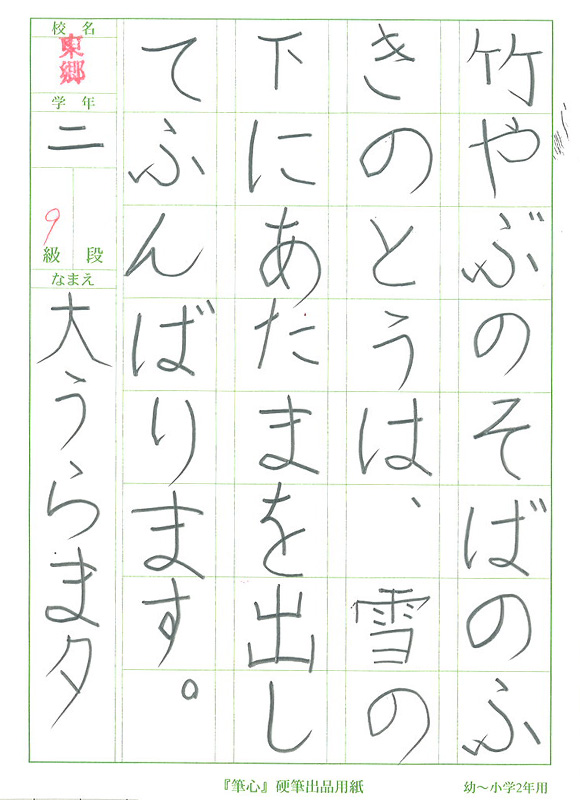 竹やぶのそばのふ
きのとうは、雪の
下にあたまを出し
てふんばります。
校名
東郷
学年
二
9
級 段
なまえ
大うらまタ
『筆心』硬筆出品用紙
幼〜小学2年用